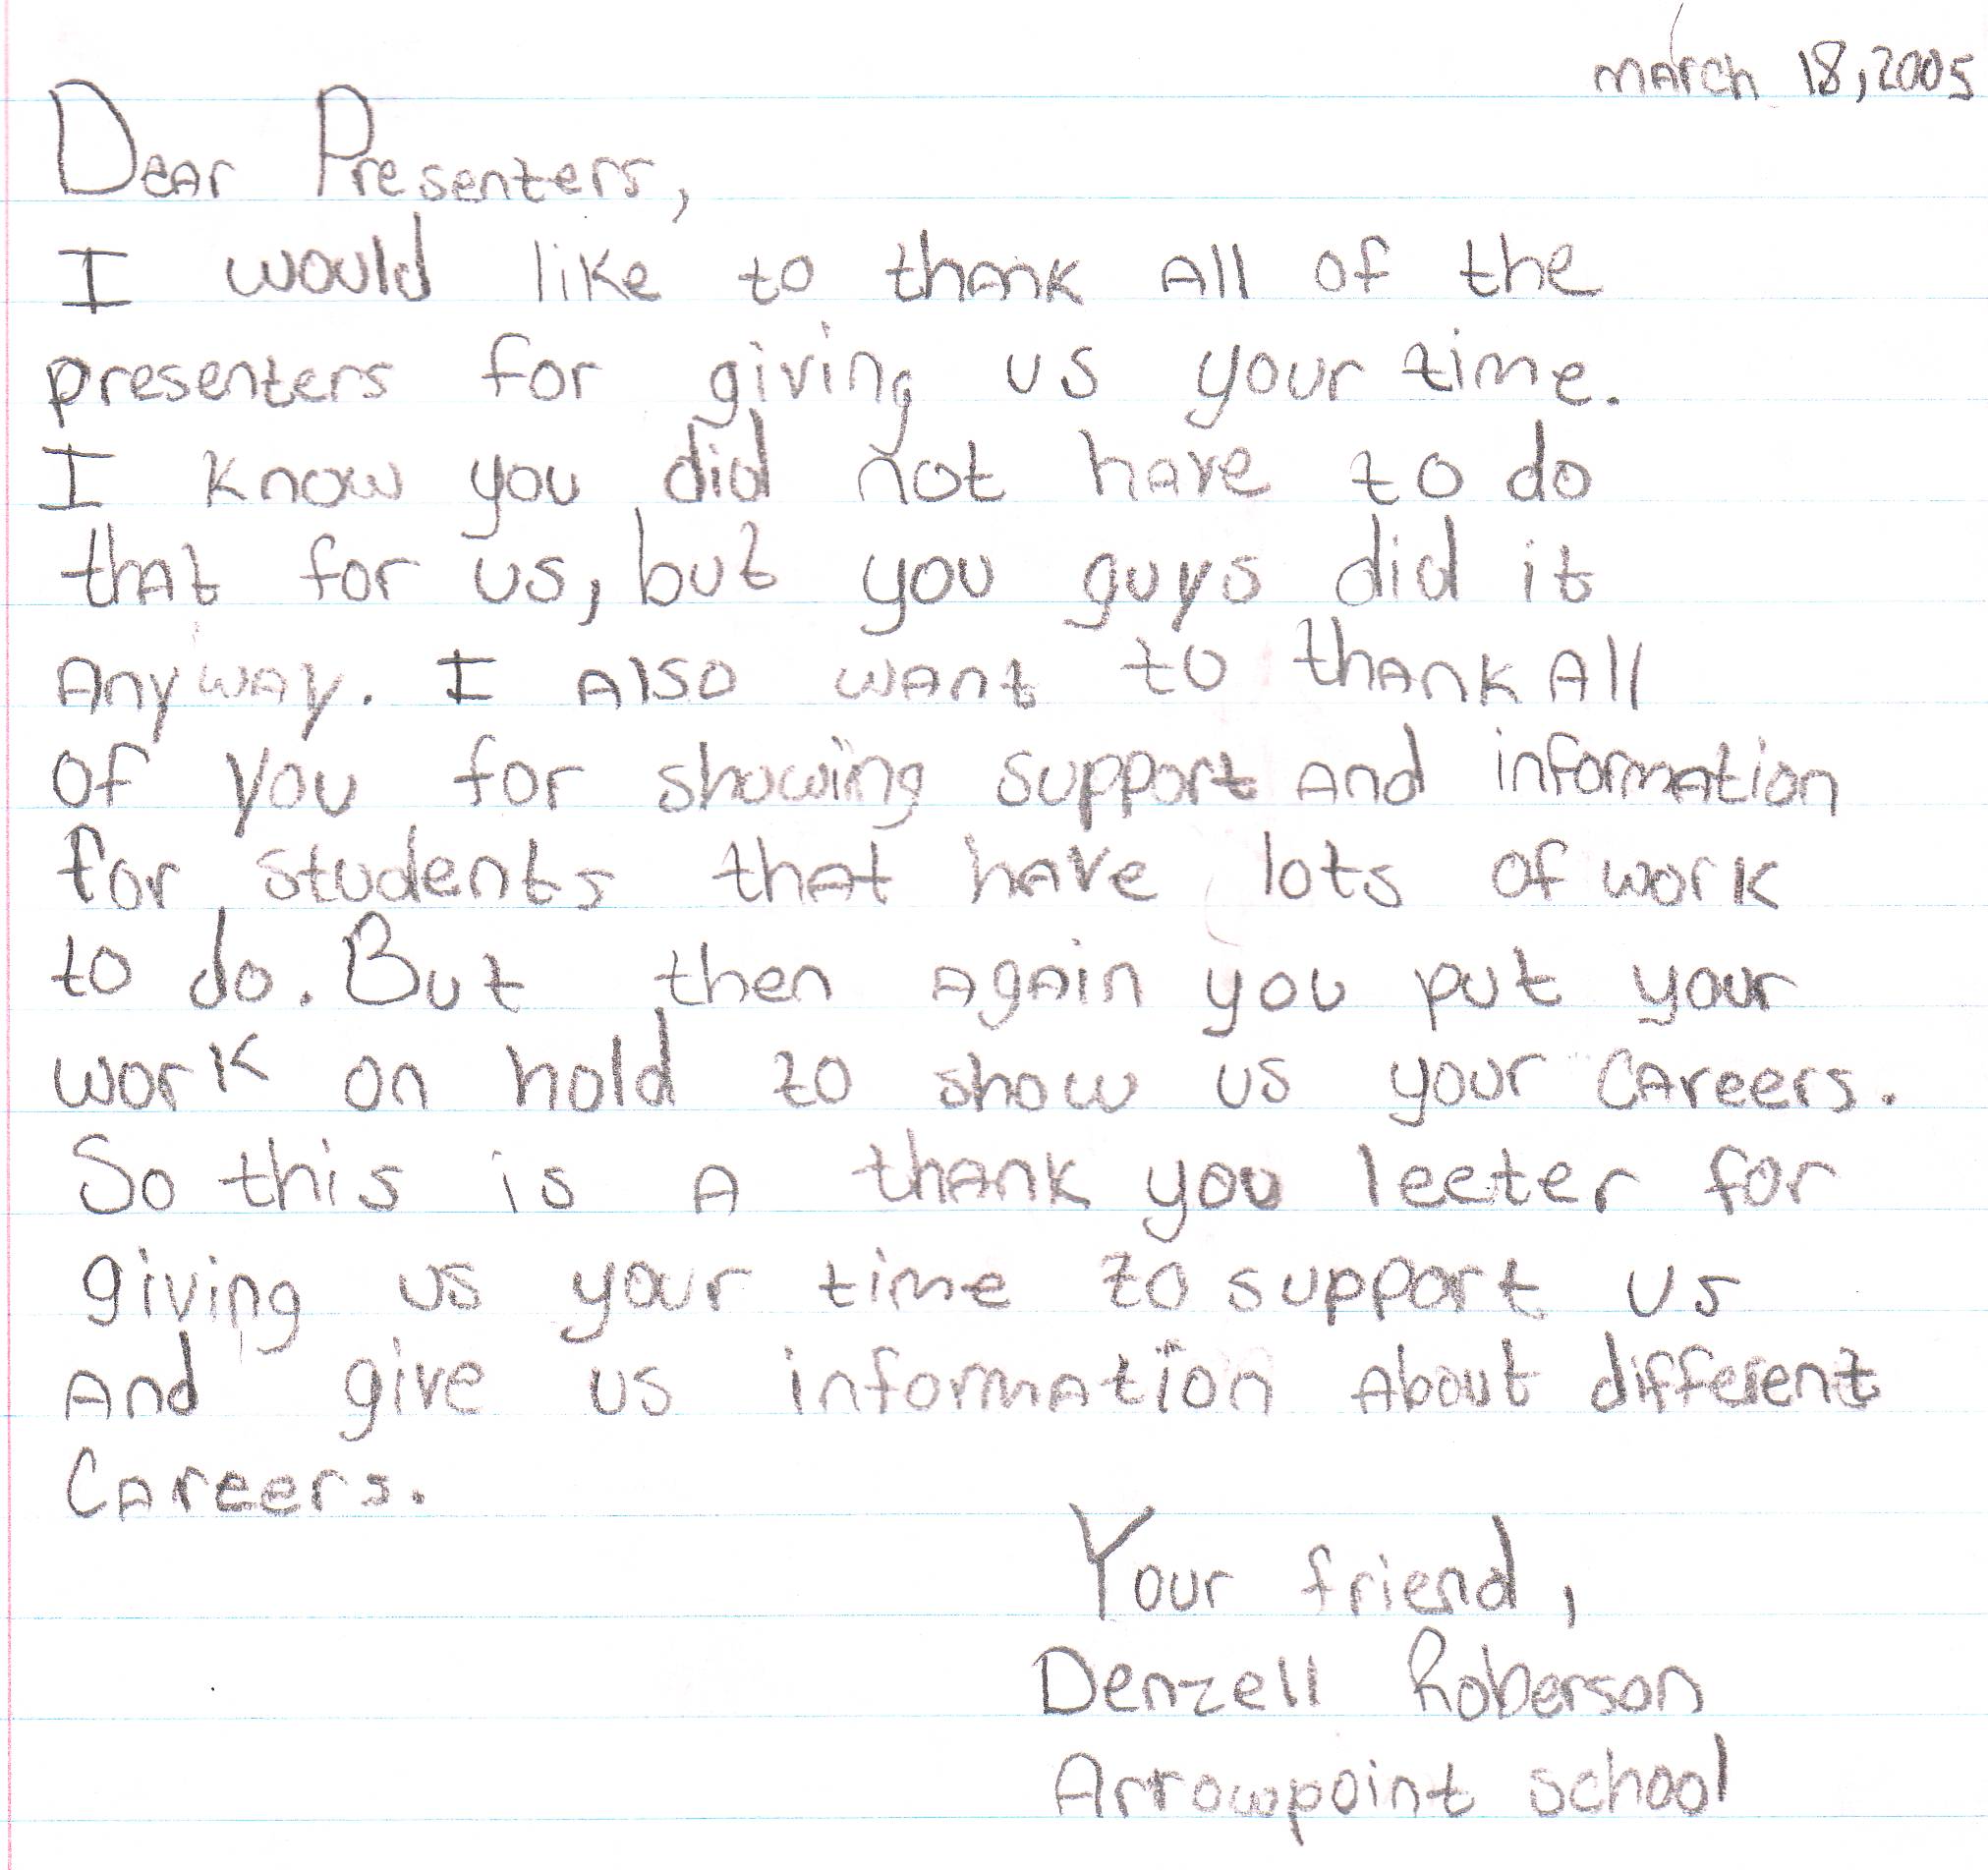 march 18,2005
Dear Presenters,
I would like to thank All of the
presenters for giving us your time.
I know you did not have to do
that for us, but you guys did it
Anyway. I Also want to thank All
of you for showing support And information
for students that have lots of work
to do. But then Again you put your
work on hold to show us your Careers.
So this is A thank you leeter for
giving us your time to support us
And give us information About different
Careers.
Your friend,
Denzell Roberson
Arrowpoint school